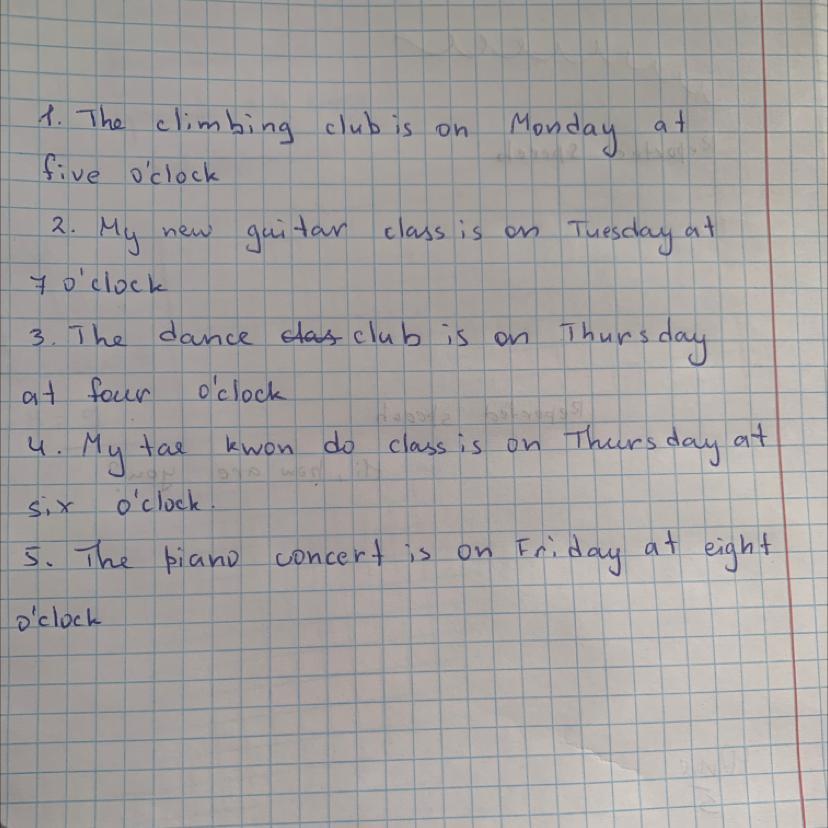 1. The climbing club is on Monday at
five o'clock
2. My new guitar class is on Tuesday at
7 o'clock
3. The dance clas club is on Thursday
at four o'clock
4. My tae kwon do class is on Thursday at
six o'clock.
5. The piano concert is on Friday at eight
o'clock